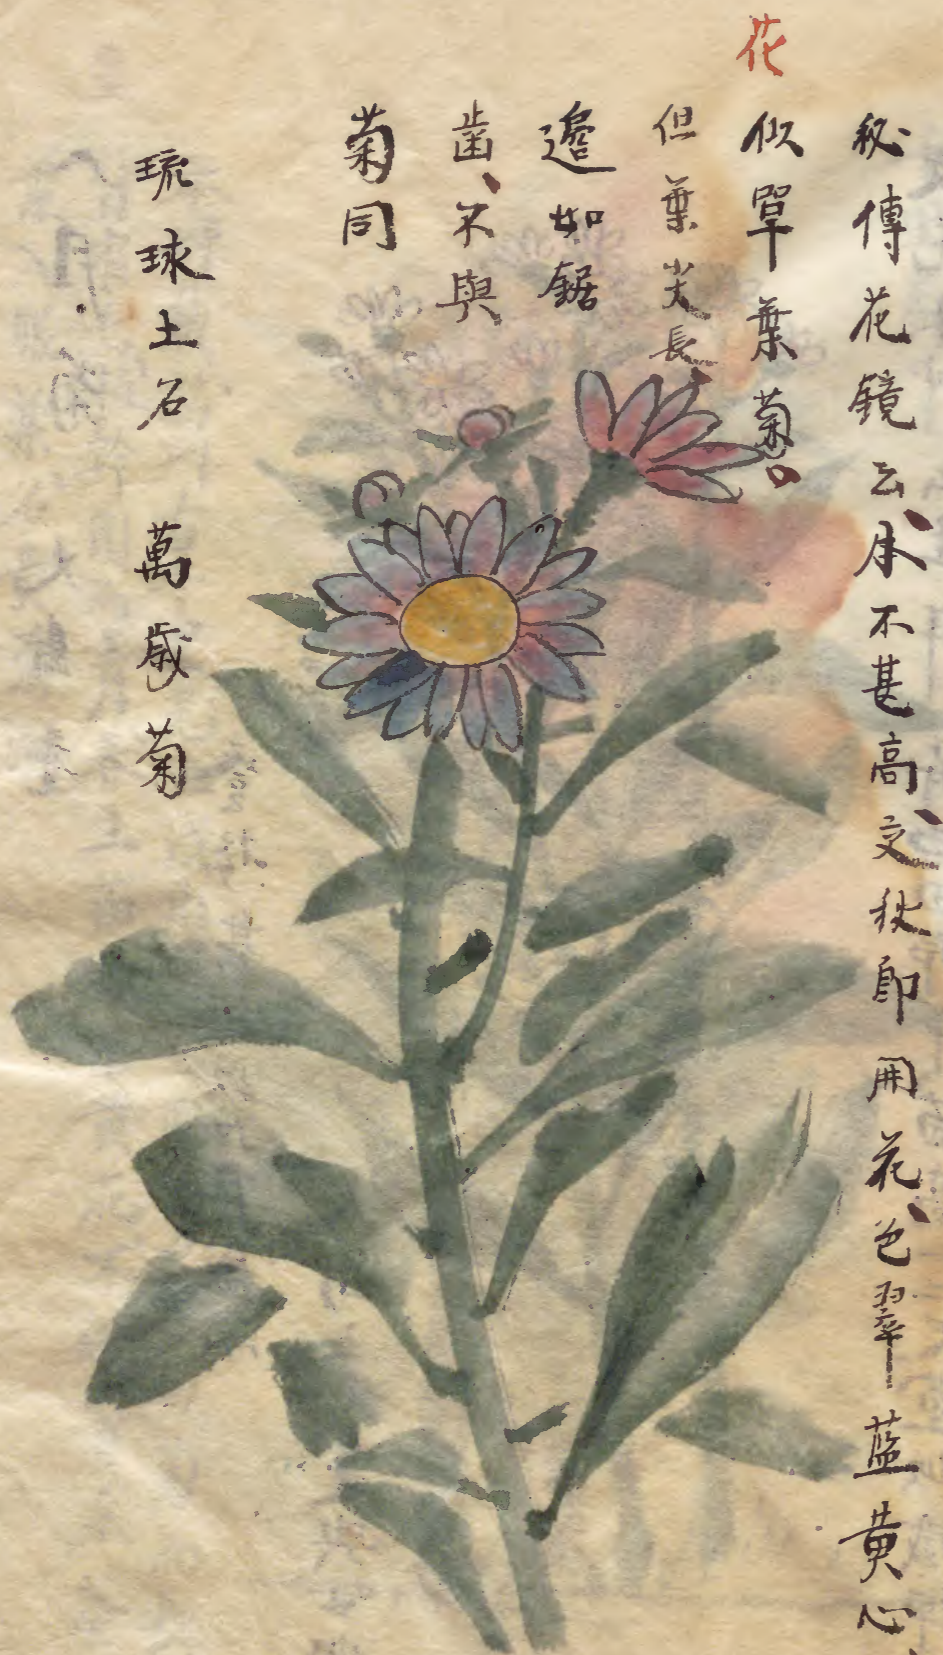 秘傳花鏡云、本不甚高、交秋即開花、色翠藍黃心、
花似單葉菊。
但葉尖長、
邊如鋸
齒、不與
菊同
琉球土名 萬歲菊